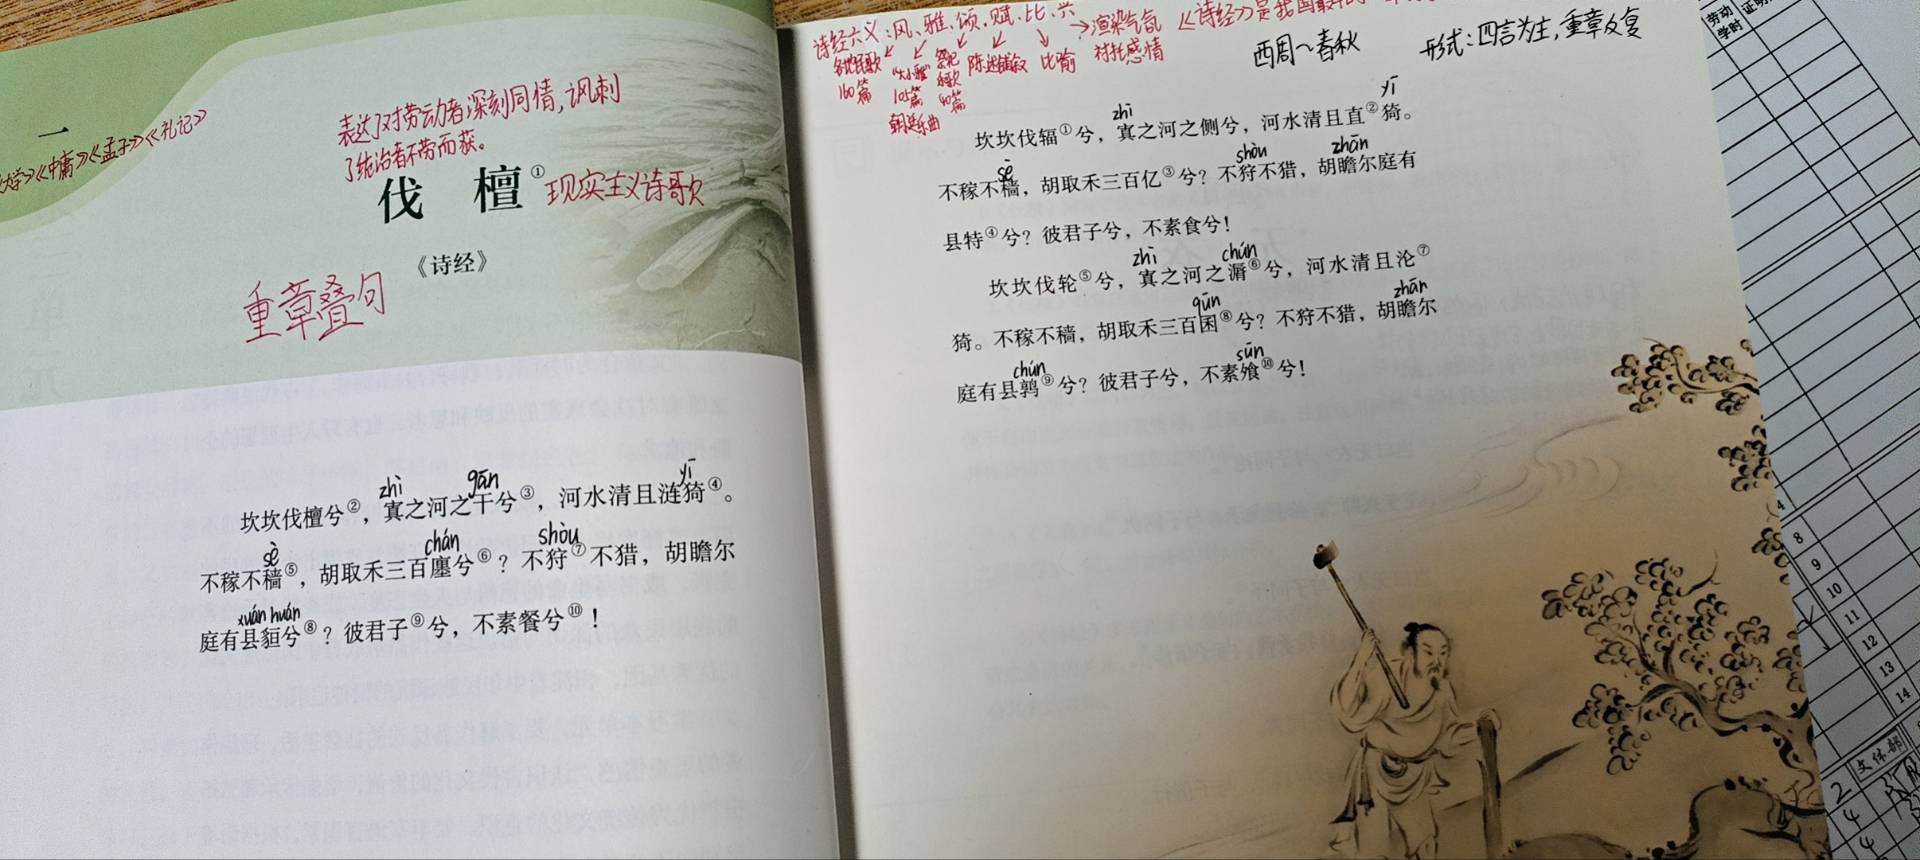 一
《中庸》《孟子》《礼记》
表达了对劳动者深刻同情，讽刺
了统治者不劳而获。
伐 檀①
现实主义诗歌
《诗经》
重章叠句
zhì gān yī
坎坎伐檀兮②，寘之河之干兮③，河水清且涟猗④。
sè chán shòu
不稼不穑⑤，胡取禾三百廛兮⑥？不狩⑦不猎，胡瞻尔
xuán huán
庭有县貆兮⑧？彼君子⑨兮，不素餐兮⑩！
诗经六义：风、雅、颂、赋、比、兴→渲染气氛
《诗经》是我国最
各地民歌 "大小雅" 祭祀 陈述铺叙 比喻 衬托感情
160篇 105篇 40篇
西周～春秋
形式：四言为主，重章反复
zhī yī
坎坎伐辐①兮，寘之河之侧兮，河水清且直②猗。
sè shòu zhān
不稼不穑，胡取禾三百亿③兮？不狩不猎，胡瞻尔庭有
县特④兮？彼君子兮，不素食兮！
zhì chún
坎坎伐轮⑤兮，寘之河之漘⑥兮，河水清且沦⑦
qūn zhān
猗。不稼不穑，胡取禾三百囷⑧兮？不狩不猎，胡瞻尔
chún sūn
庭有县鹑⑨兮？彼君子兮，不素飧⑩兮！
劳动
学时
证明
8
9
10
11
12
13
14
文体部
2
4
4